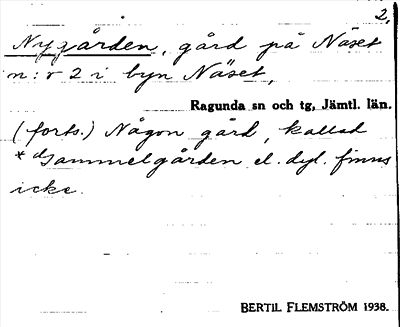 2,
Nygården, gård på Näset
n:r 2 i byn Näset,
Ragunda sn och tg, Jämtl. län.
(forts.) Någon gård, kallad
*Gammelgården el. dyl. finns
icke.
BERTIL FLEMSTRÖM 1938.